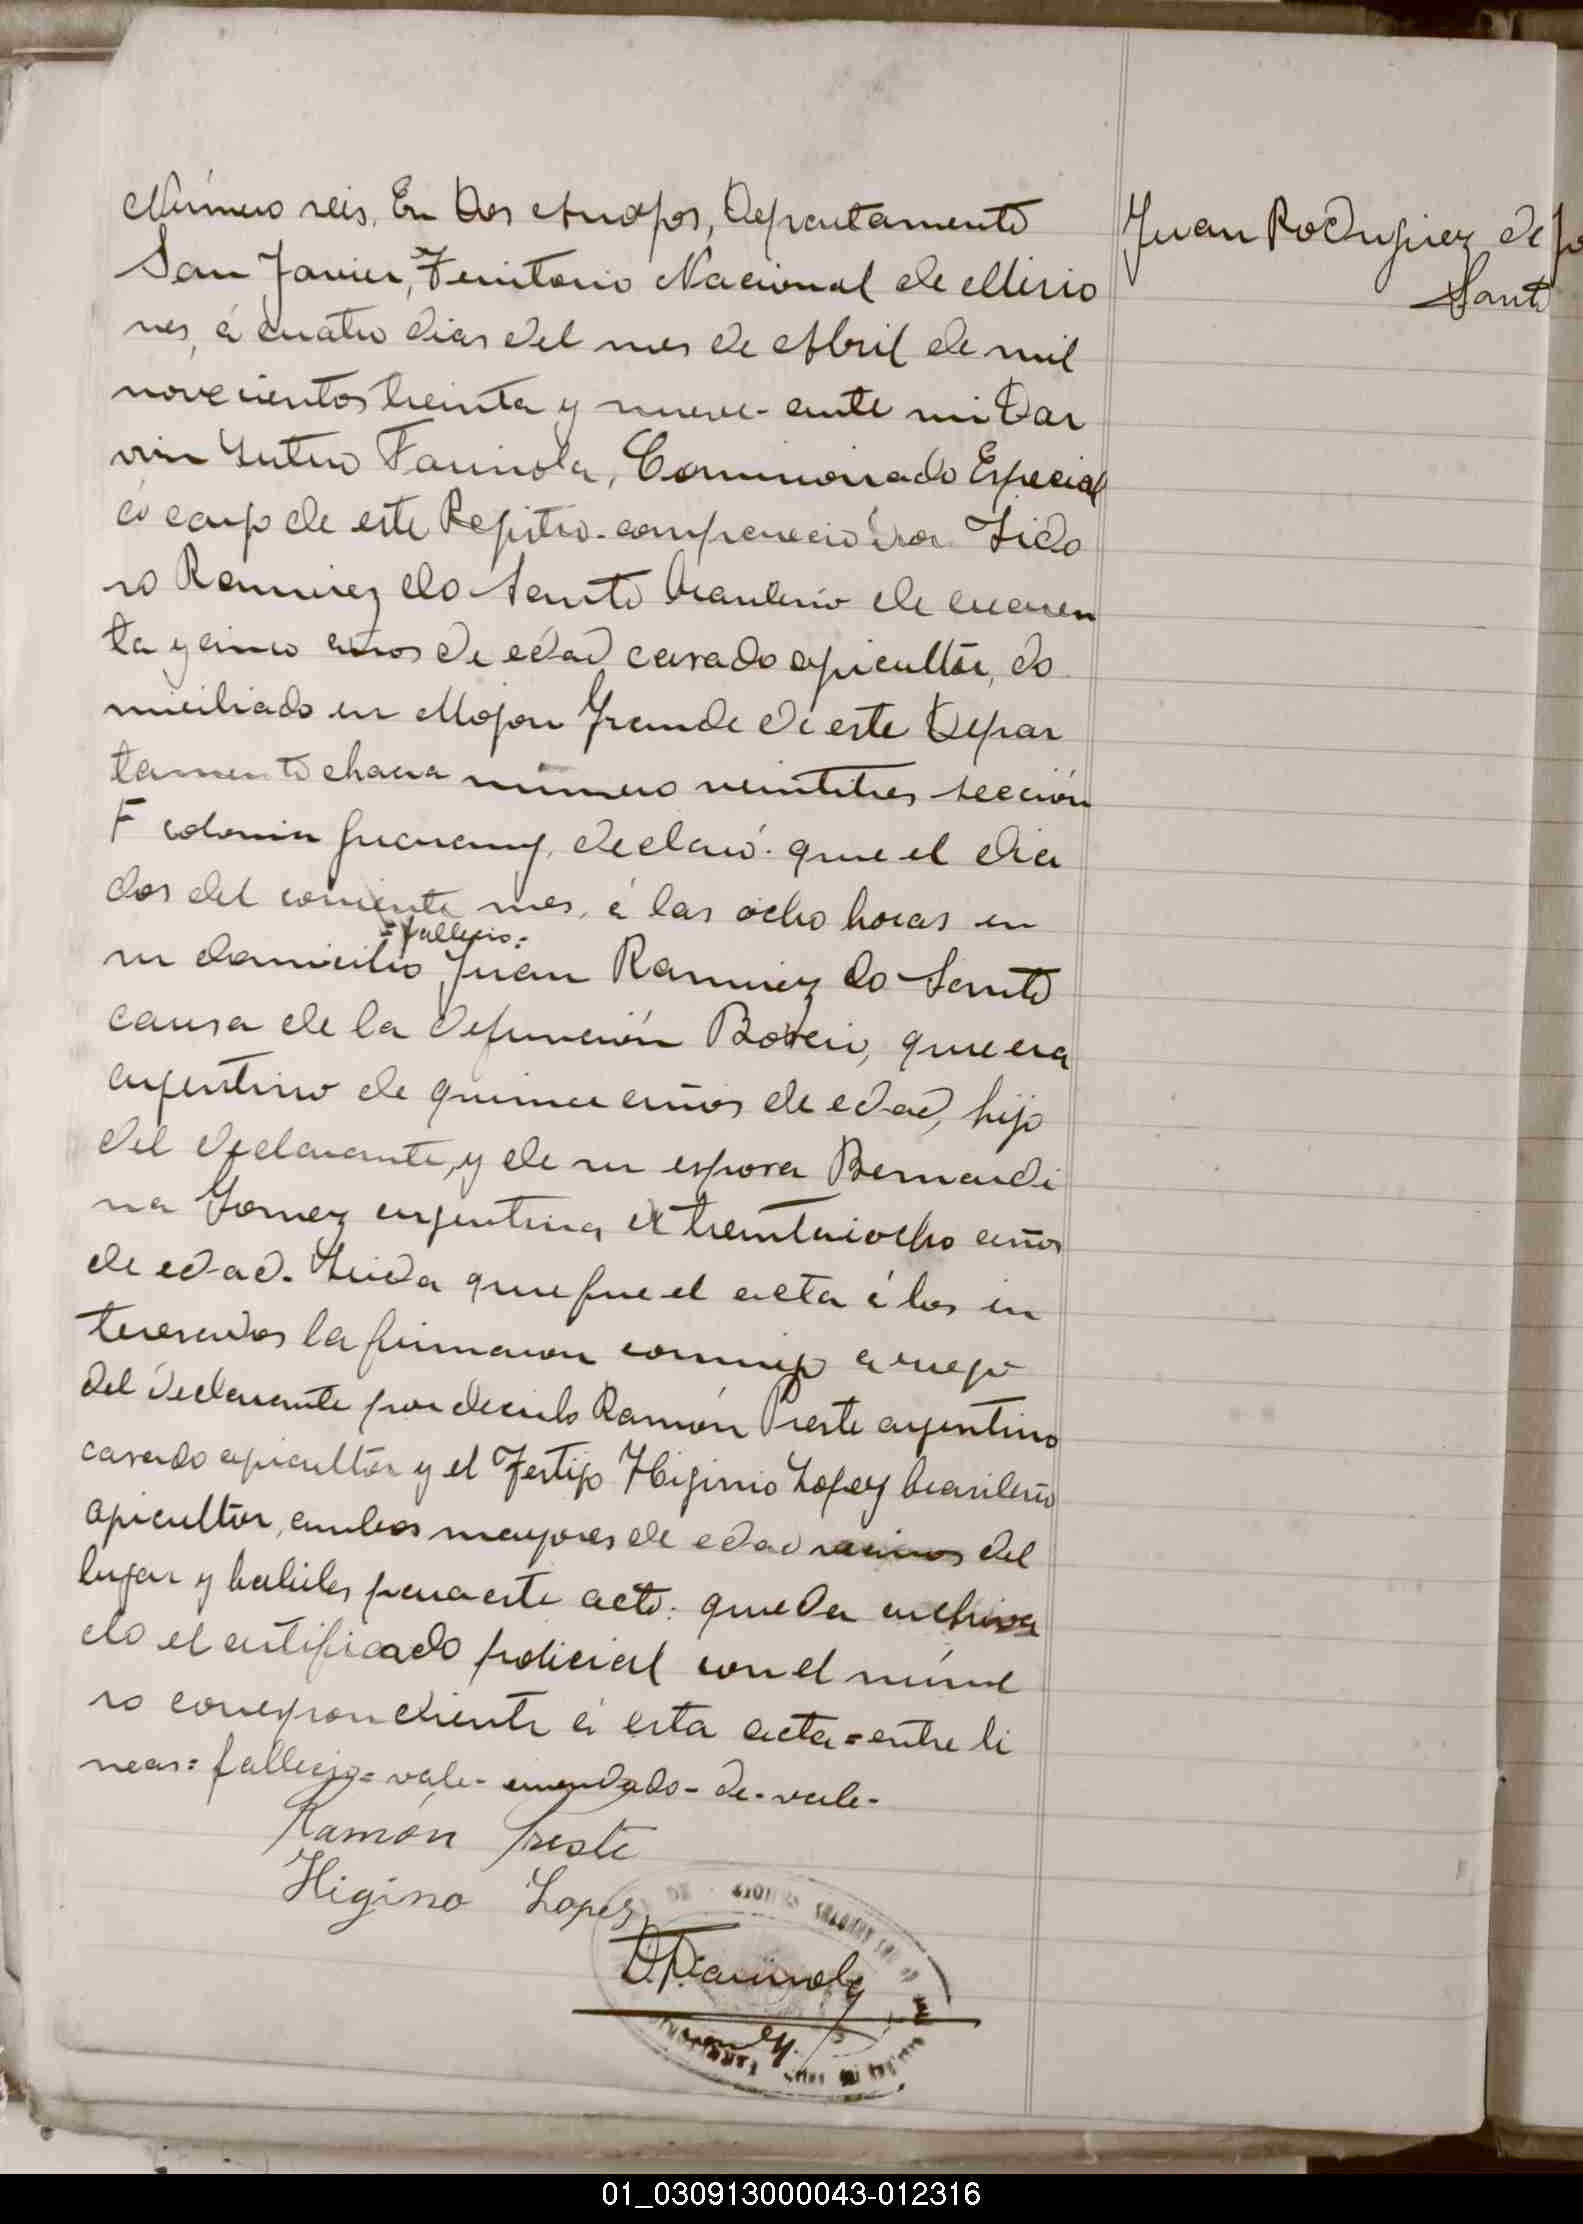 Número seis. En Dos Arroyos, Departamento
San Javier, Territorio Nacional de Misio
nes, á cuatro dias del mes de Abril de mil
novecientos treinta y nueve- ante mi Dar
vin Farinola, Comisionado Especial
á cargo de este Registro- compareció don Isido
ro Ramirez do Santo brasilerio de cuaren
ta y cinco años de edad casado agricultor, do
miciliado en Mojon Grande de este Depar
tamento chacra número veintitres sección
F colonia Guarany, declaró: que el dia
dos del corriente mes, á las ocho horas en
=fallecio=
su domicilio Juan Ramirez do Santo
causa de la defunción, que era
argentino de quince años de edad, hijo
del declarante, y de su esposa Bernardi
na Gomez argentina de treintaiocho años
de edad. Leida que fue el acta á los in
teresados la firmaron conmigo a ruego
del declarante por decirlo Ramón Preste argentino
casado agricultor y el Testigo Higinio Lopez brasilerio
agricultor, ambos mayores de edad vecinos del
lugar y habiles para este acto: queda archiva
do el certificado policial con el núme
ro correspondiente á esta acta=entre li
neas= fallecio= vale- enmendado- de- vale-
Ramón Preste
Higino Lopez
D. Farinola
Juan Rodriguez do
Sant
01_030913000043-012316